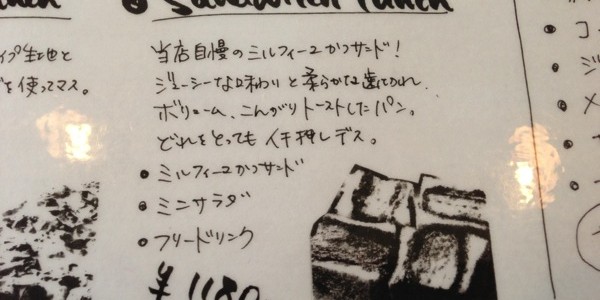 Sandwich Lunch
当店自慢のミルフィーユかつサンド!
ジューシーな味わいと柔らかな歯ごたえ、
ボリューム、こんがりトーストしたパン。
どれをとってもイチ押しデス。
• ミルフィーユかつサンド
• ミニサラダ
• フリードリンク
¥1180
を使ってマス。